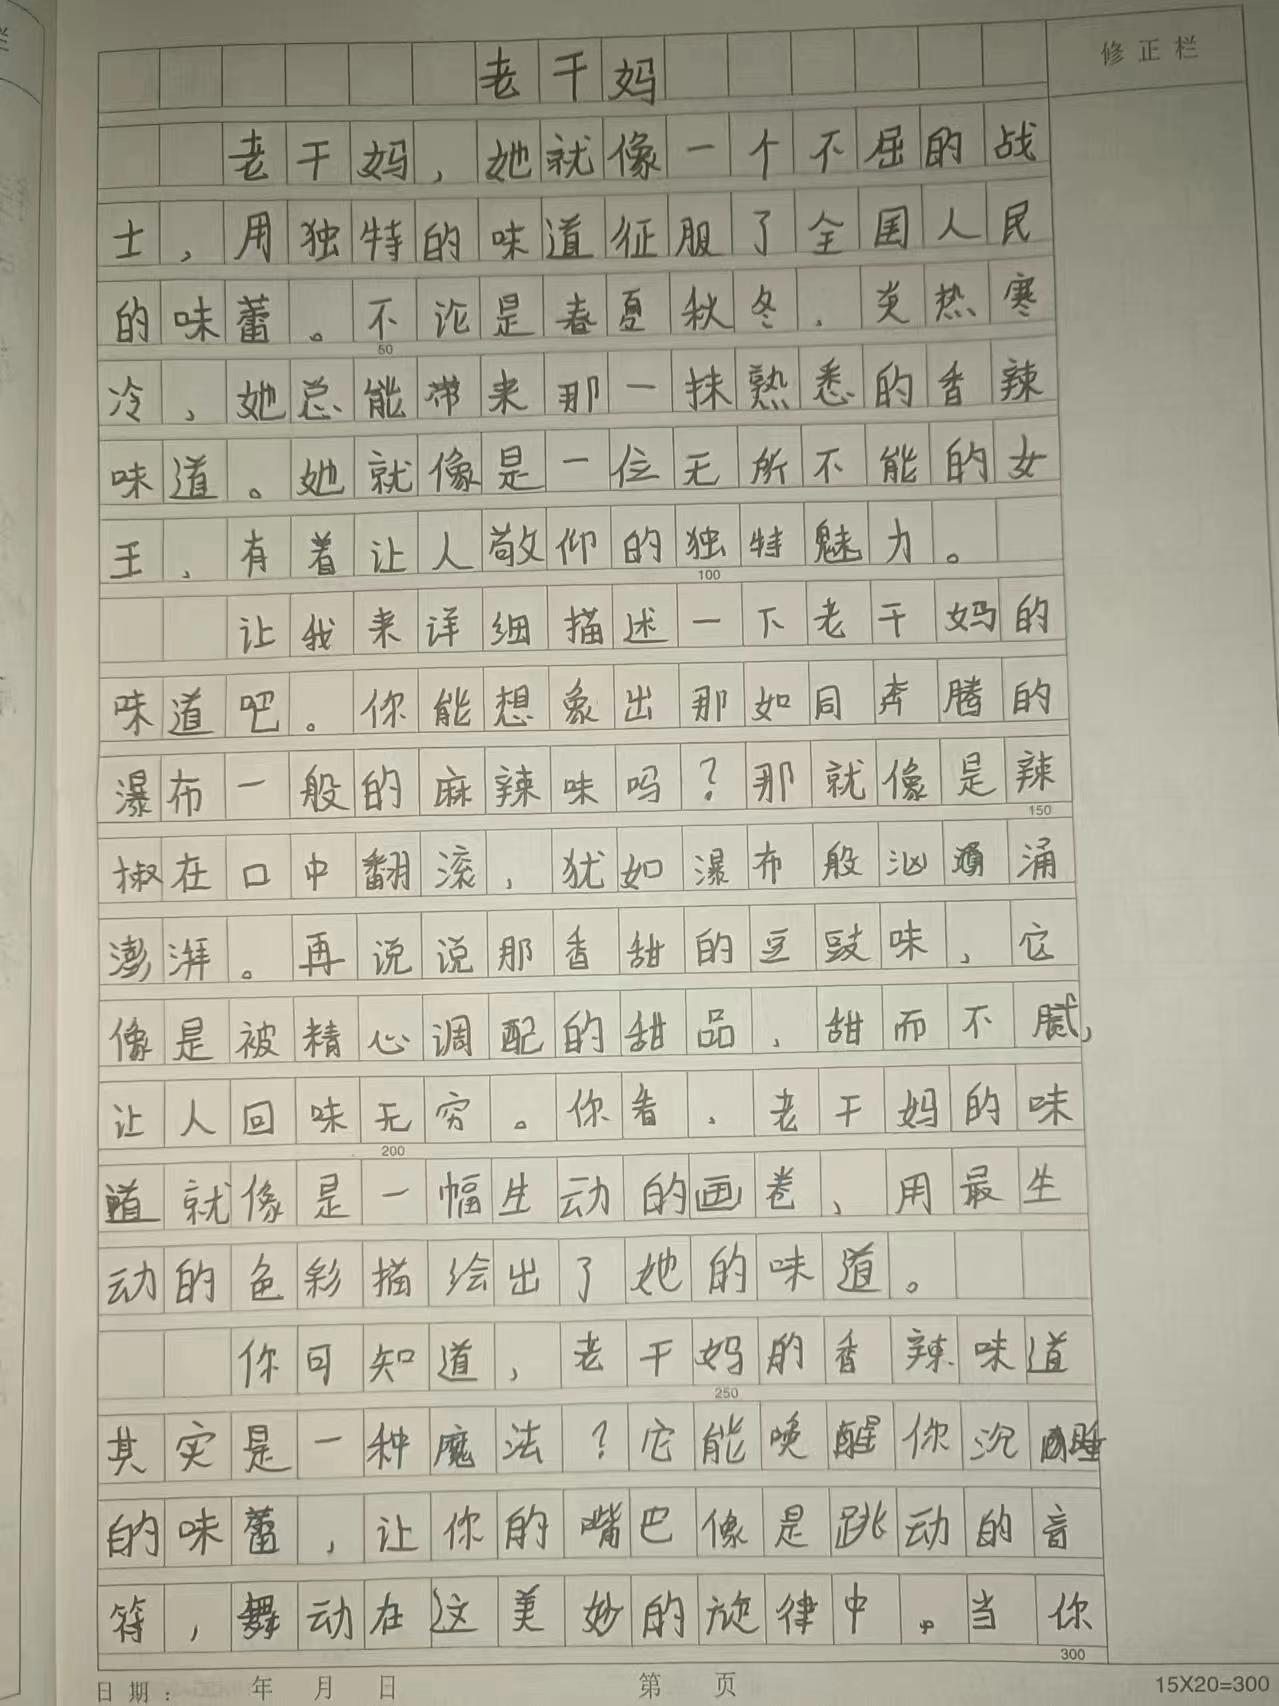 老干妈
修正栏
老干妈，她就像一个不屈的战
士，用独特的味道征服了全国人民
的味蕾。不论是春夏秋冬，炎热寒
50
冷，她总能带来那一抹熟悉的香辣
味道。她就像是一位无所不能的女
王，有着让人敬仰的独特魅力。
100
让我来详细描述一下老干妈的
味道吧。你能想象出那如同奔腾的
瀑布一般的麻辣味吗？那就像是辣
150
椒在口中翻滚，犹如瀑布般汹涌
澎湃。再说说那香甜的豆豉味，它
像是被精心调配的甜品，甜而不腻，
让人回味无穷。你看，老干妈的味
200
道就像是一幅生动的画卷，用最生
动的色彩描绘出了她的味道。
你可知道，老干妈的香辣味道
250
其实是一种魔法？它能唤醒你沉睡
的味蕾，让你的嘴巴像是跳动的音
符，舞动在这美妙的旋律中。当你
300
日期： 年 月 日 第 页 15X20=300